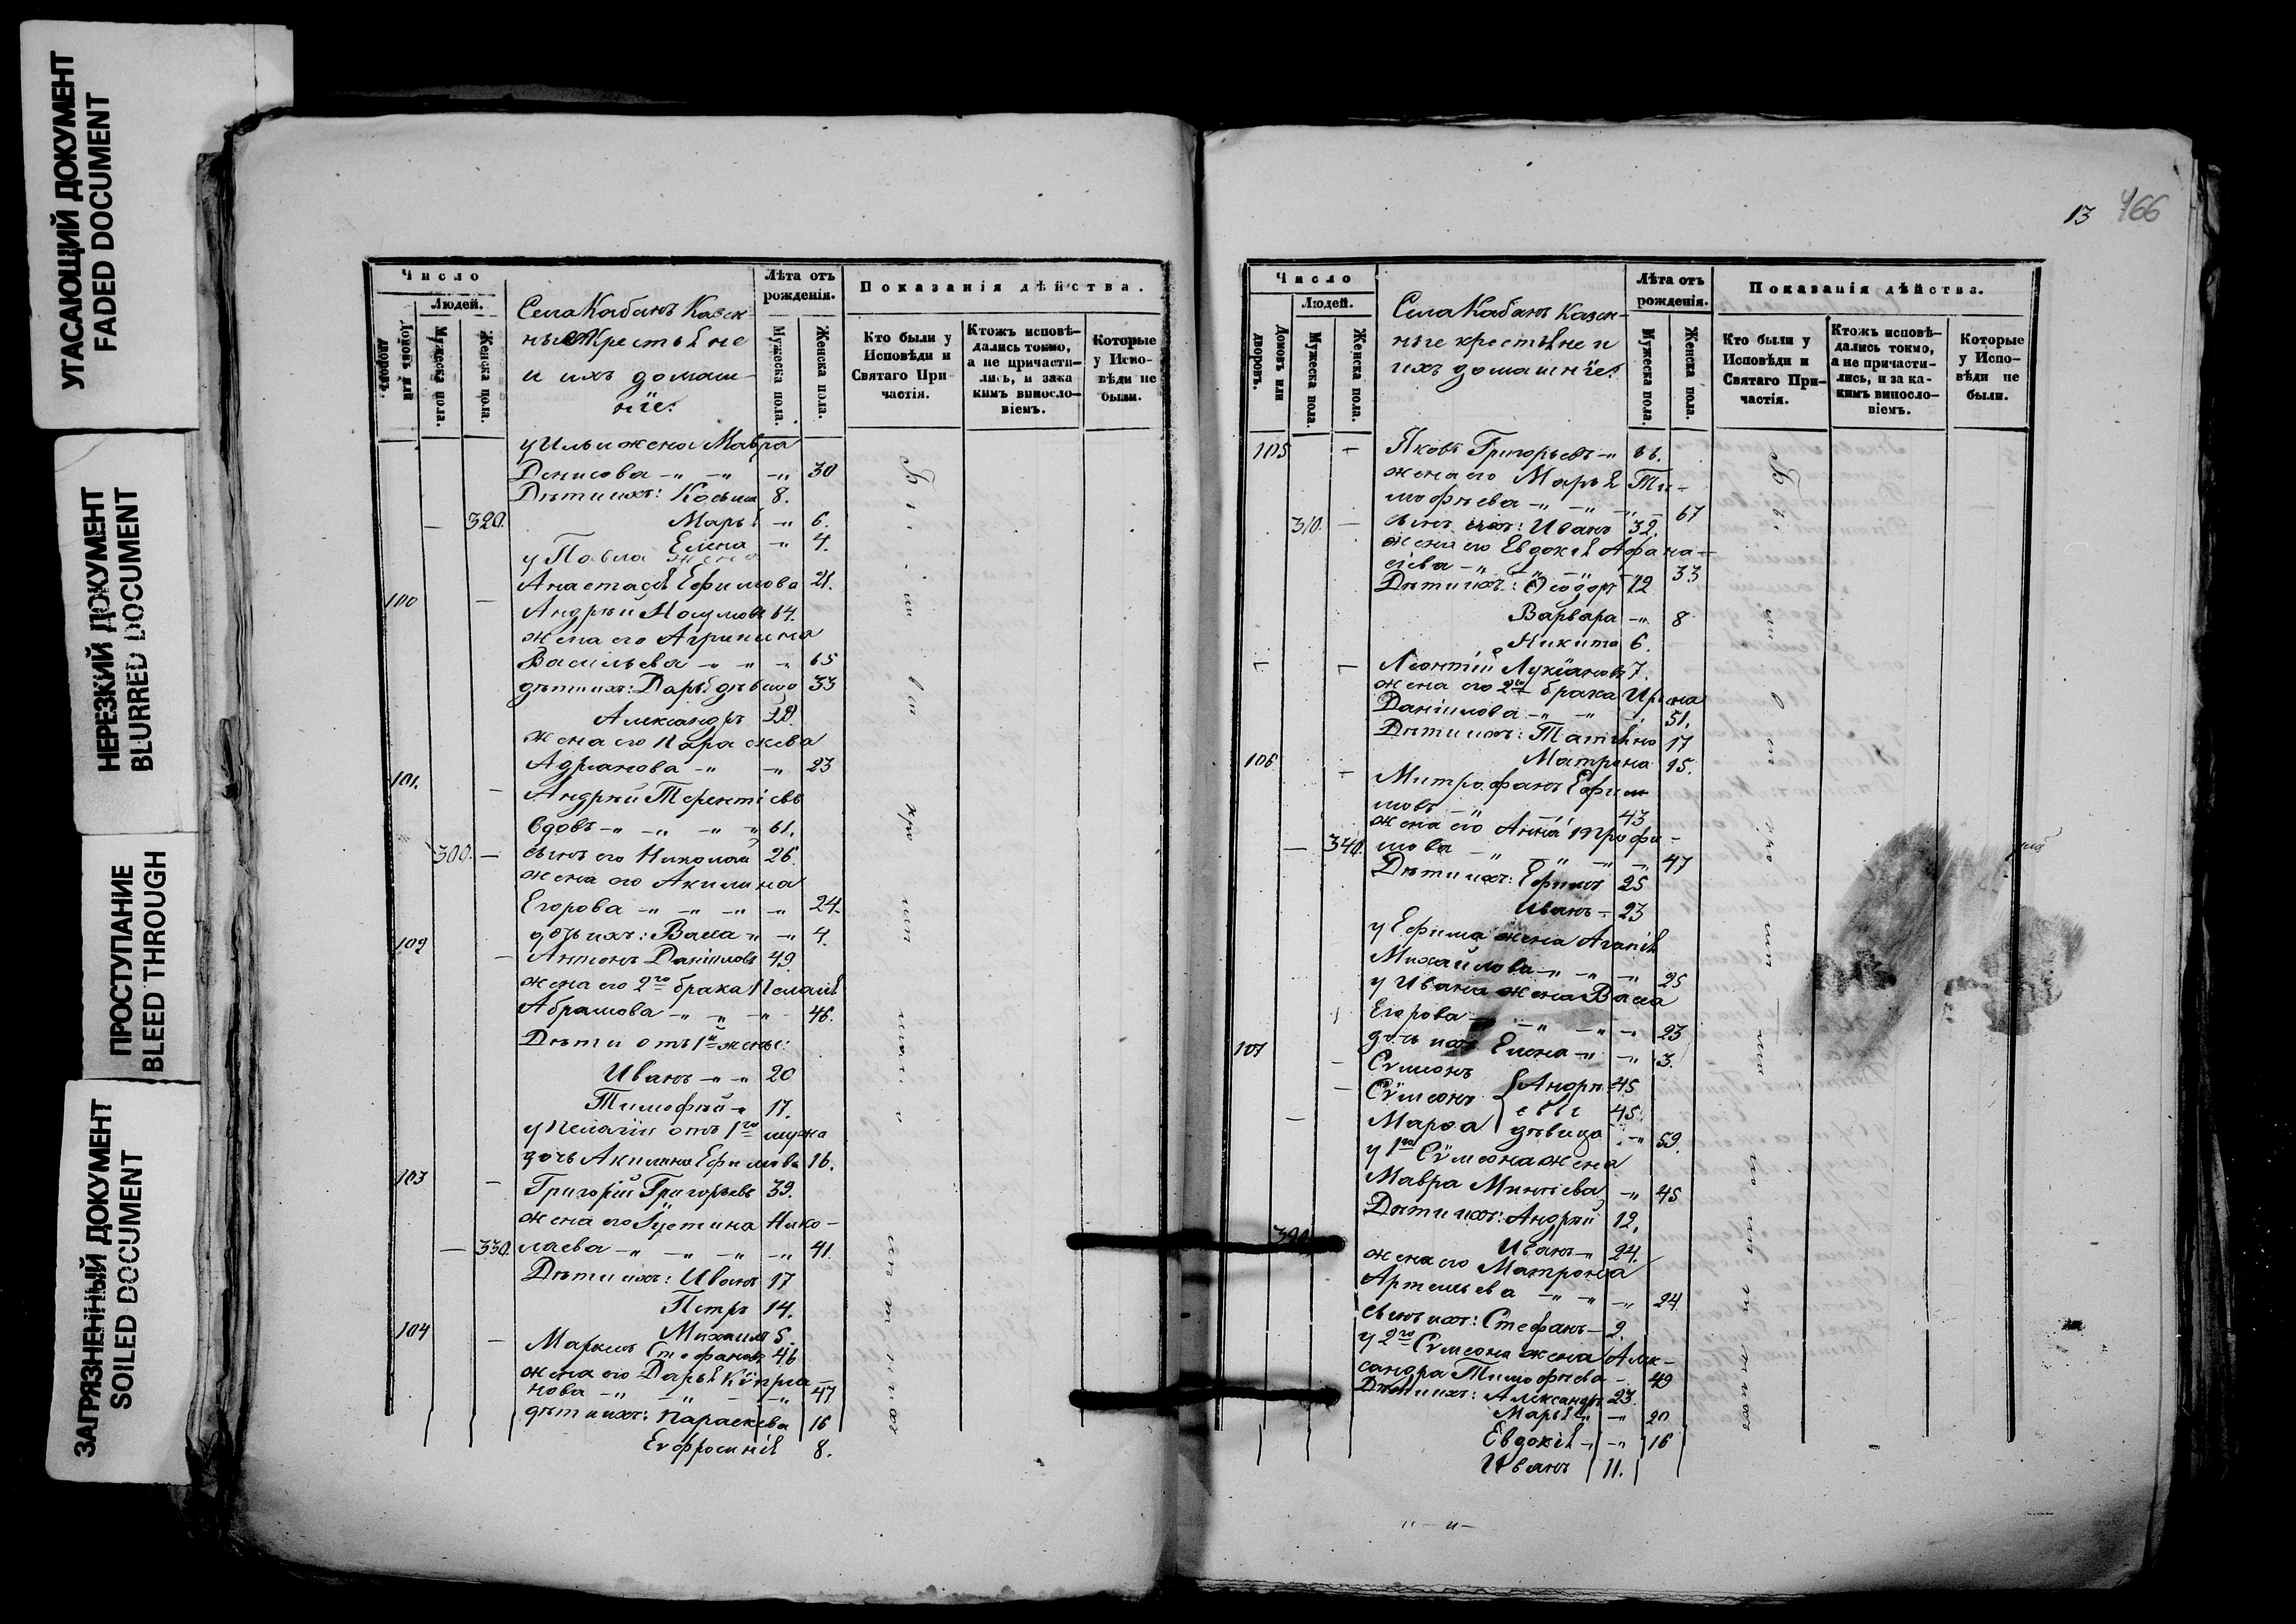 УГАСАЮЩИЙ ДОКУМЕНТ
FADED DOCUMENT
НЕРЕЗКИЙ ДОКУМЕНТ
BLURRED DOCUMENT
ПРОСТУПАНИЕ
BLEED THROUGH
ЗАГРЯЗНЕННЫЙ ДОКУМЕНТ
SOILED DOCUMENT
Число
Людей.
Домовъ или дворовъ.
Мужеска пола.
Женска пола.
Села Кабанъ Казен-
ные Крестьяне
и ихъ домаш-
нїе:
Лѣта отъ
рожденія.
Мужеска пола.
Женска пола.
Показанія дѣйства.
Кто были у
Исповѣди и
Святаго При-
частія.
Ктожъ исповѣ-
дались токмо,
а не причасти-
лись, и зака
кимъ виносло-
віемъ.
Которые
у Испо-
вѣди не
были.
у Ильи жена Мавра
Денисова 30
Дѣти ихъ: Косьма 8.
320. Марья 6.
Елена 4.
у Павла жена
Анастасія Ефимова 21.
100 Андрей Наумовъ 64.
жена его Агрипина
Васильева 65
дѣти ихъ: Дарья дѣвица 33
Александръ 28.
жена его Параскева
Адрианова 23
101. Андрей Терентіевъ
вдовъ 61.
300. сынъ его Николай 26.
жена его Акилина
Егорова 24.
дочь ихъ: Васса 4.
102 Антонъ Даніиловъ 49.
жена его 2го брака Пелагія
Абрамова 46.
Дѣти отъ 1й жены:
Иванъ 20
Тимофей 17.
у Пелагіи отъ 1го мужа
дочь Акилина Ефимова 16.
103 Григорій Григорьевъ 39.
жена его Іустина Нико-
330. лаева 41.
Дѣти ихъ: Иванъ 17
Петръ 14.
Михаилъ 5.
104 Маркелъ Стефановъ 46
жена его Дарья Кипрiа-
нова 47
дѣти ихъ: Параскева 16
Евфросинія 8.
13 466
Число
Людей.
Домовъ или дворовъ.
Мужеска пола.
Женска пола.
Села Кабанъ Казен-
ные крестьяне и
ихъ домашнїе:
Лѣта отъ
рожденія.
Мужеска пола.
Женска пола.
Показанія дѣйства.
Кто были у
Исповѣди и
Святаго При-
частія.
Ктожъ исповѣ-
дались токмо,
а не причасти-
лись, и за ка-
кимъ виносло-
віемъ.
Которые
у Испо-
вѣди не
были.
105 Яковъ Григорьевъ
жена его Марья Ти-
мофеева 67
310. сынъ ихъ: Иванъ 32.
жена его Евдокія Афана-
сіева 33
Дѣти ихъ: Ѳеодоръ 12
Варвара 8
Никита 6.
Леонтій Лукіановъ
жена его 2го брака Ирина
Даніилова 51.
Дѣти ихъ: Татьяна 17
Матрона 15.
106 Митрофанъ Ефи-
мовъ 43
жена его Анна Трофи-
340. мова 47
Дѣти ихъ: Ефимъ 25
Иванъ 23
у Ефима жена Агапія
Михайлова 25
у Ивана жена Васса
Егорова 23
дочь ихъ Елена 3.
107 Сѵмеонъ Андре- 45
Сѵмеонъ евы 45.
Марѳа дѣвица 59.
у 1го Сѵмеона жена
Мавра Минтьева 45
Дѣти ихъ: Андрей 12.
Иванъ 24.
жена его Матрона
Артемьева 24
сынъ ихъ: Стефанъ 2.
у 2го Сѵмеона жена Алек-
сандра Тимофеева 49
Дѣти ихъ: Александръ 23.
Марья 20
Евдокія 16
Иванъ 11.